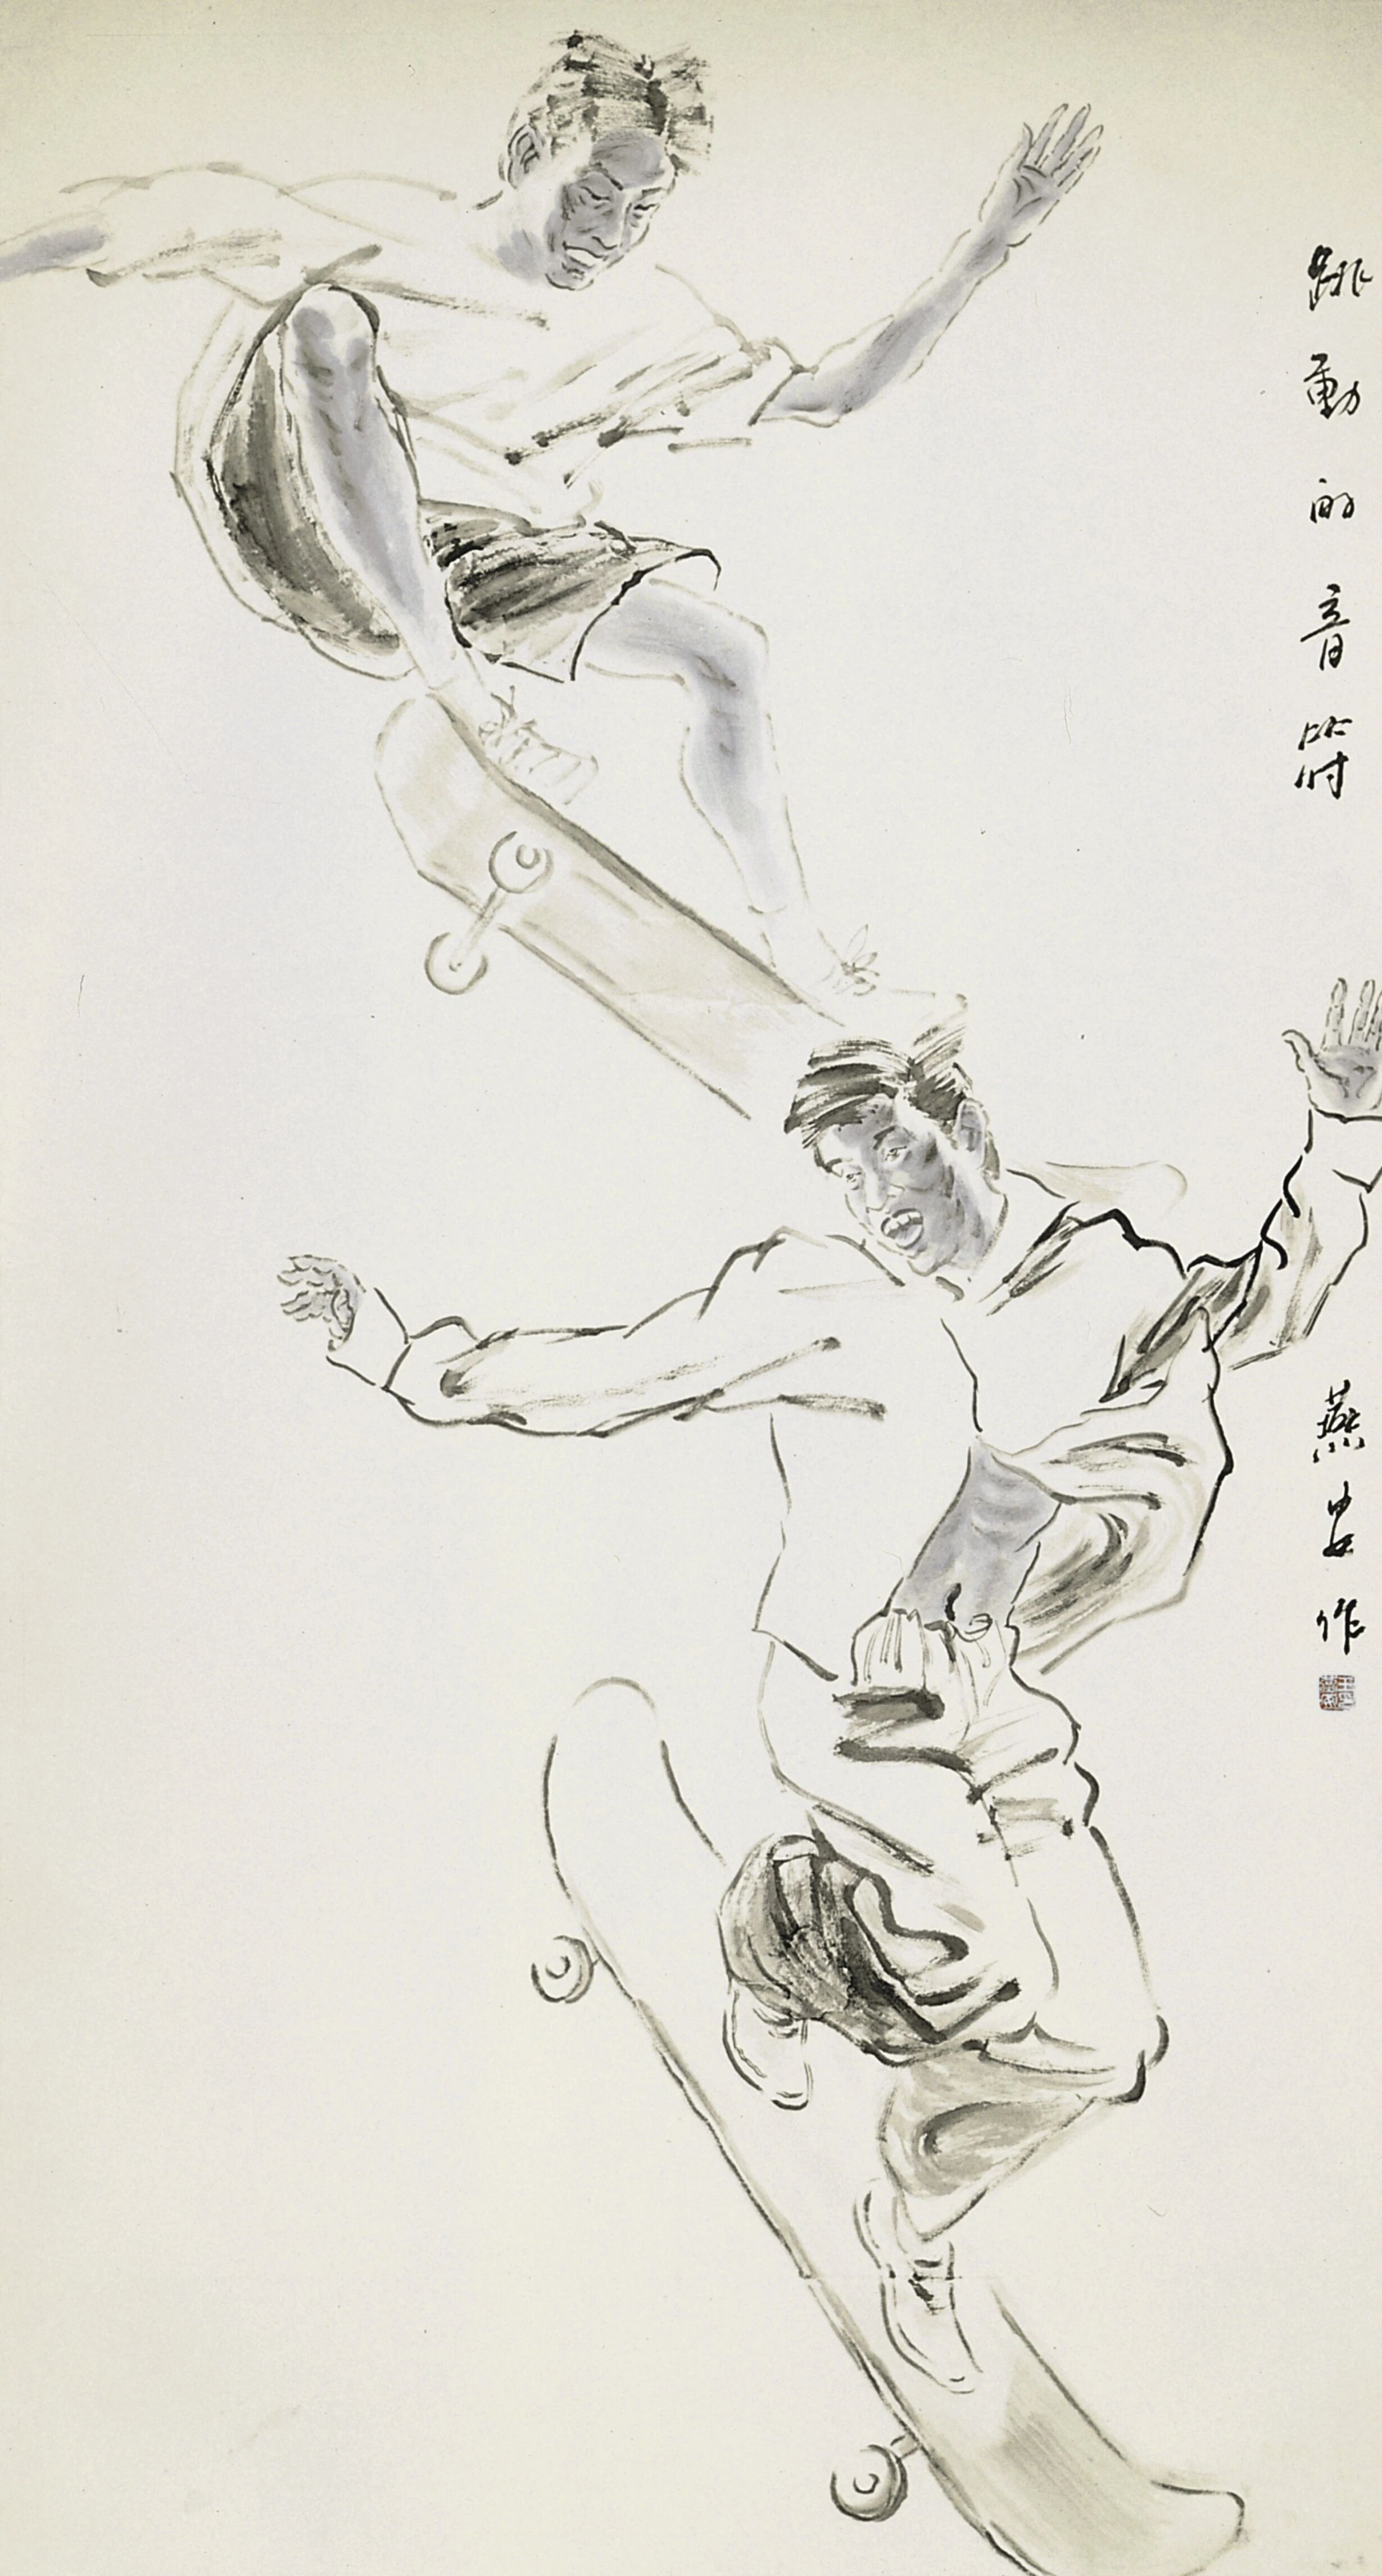 跳動的音符
燕安作